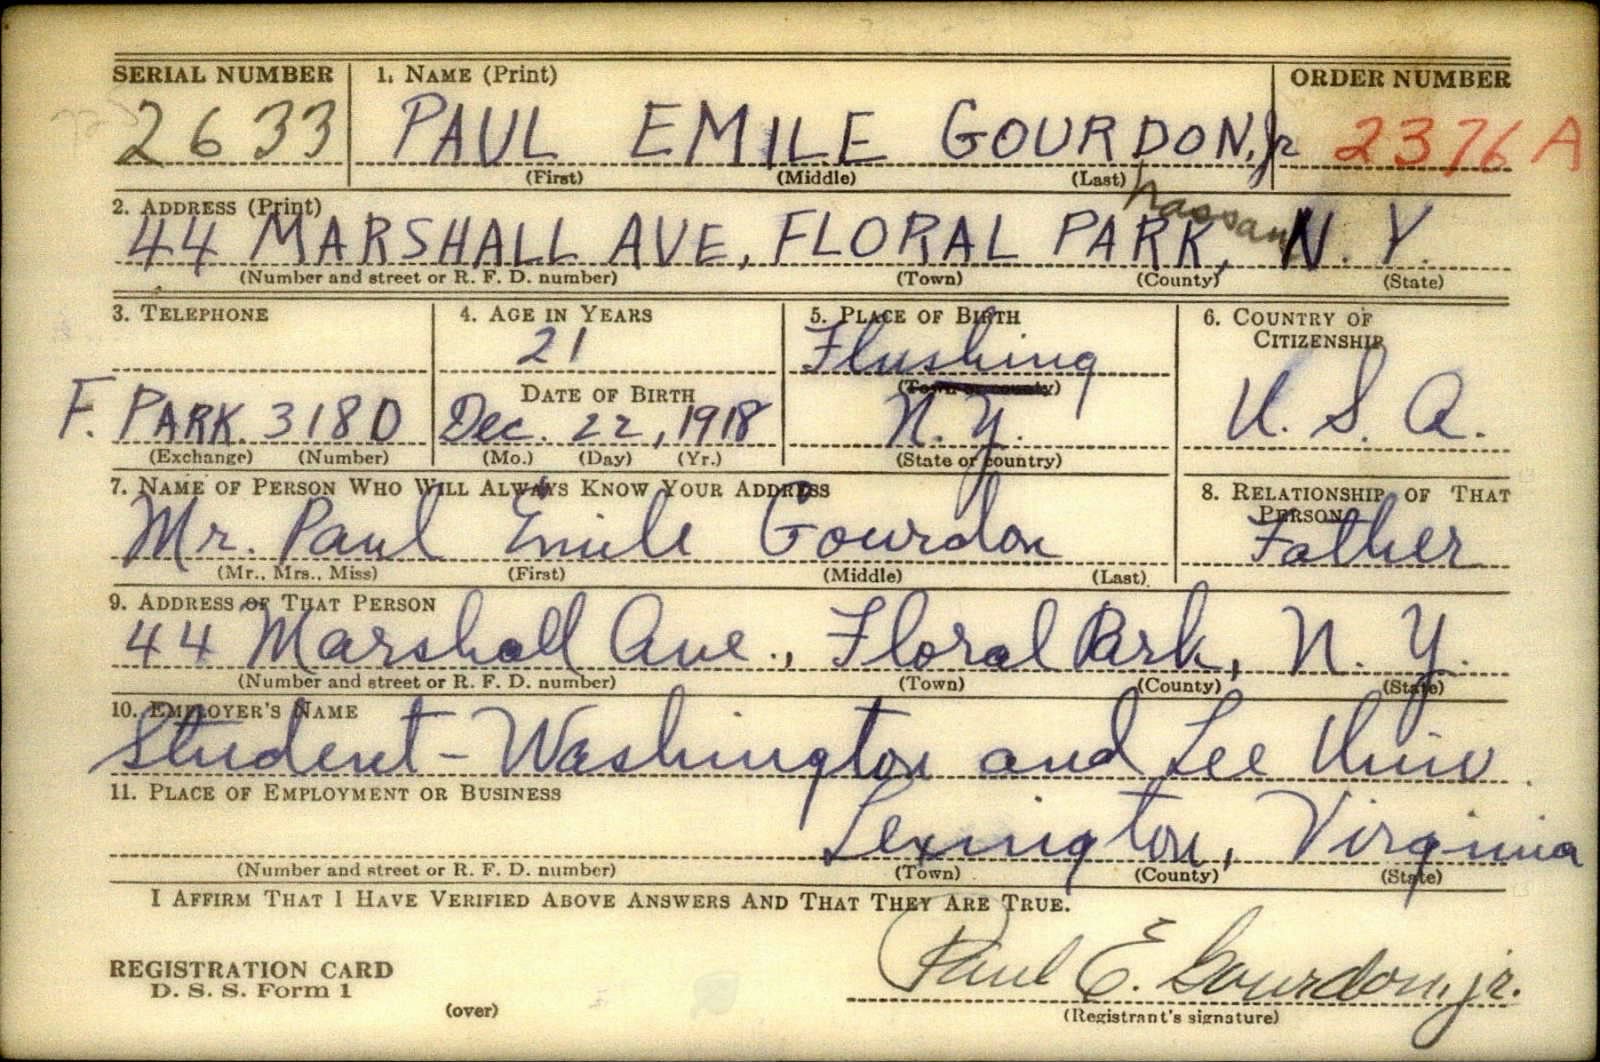 SERIAL NUMBER 1. NAME (Print) ORDER NUMBER
2633 PAUL EMILE GOURDON, Jr 2376 A
(First) (Middle) (Last)
2. ADDRESS (Print) Nassau
44 MARSHALL AVE, FLORAL PARK, N. Y.
(Number and street or R. F. D. number) (Town) (County) (State)
3. TELEPHONE 4. AGE IN YEARS 5. PLACE OF BIRTH 6. COUNTRY OF CITIZENSHIP
21 Flushing
DATE OF BIRTH (Town or county)
F. PARK. 3180 Dec. 22, 1918 N. Y. U. S. A.
(Exchange) (Number) (Mo.) (Day) (Yr.) (State or country)
7. NAME OF PERSON WHO WILL ALWAYS KNOW YOUR ADDRESS 8. RELATIONSHIP OF THAT PERSON
Mr. Paul Emile Gourdon Father
(Mr., Mrs., Miss) (First) (Middle) (Last)
9. ADDRESS OF THAT PERSON
44 Marshall Ave., Floral Park, N. Y.
(Number and street or R. F. D. number) (Town) (County) (State)
10. EMPLOYER'S NAME
Student - Washington and Lee Univ.
11. PLACE OF EMPLOYMENT OR BUSINESS
Lexington, Virginia
(Number and street or R. F. D. number) (Town) (County) (State)
I AFFIRM THAT I HAVE VERIFIED ABOVE ANSWERS AND THAT THEY ARE TRUE.
REGISTRATION CARD
D. S. S. Form 1
(over)
Paul E. Gourdon, jr.
(Registrant's signature)